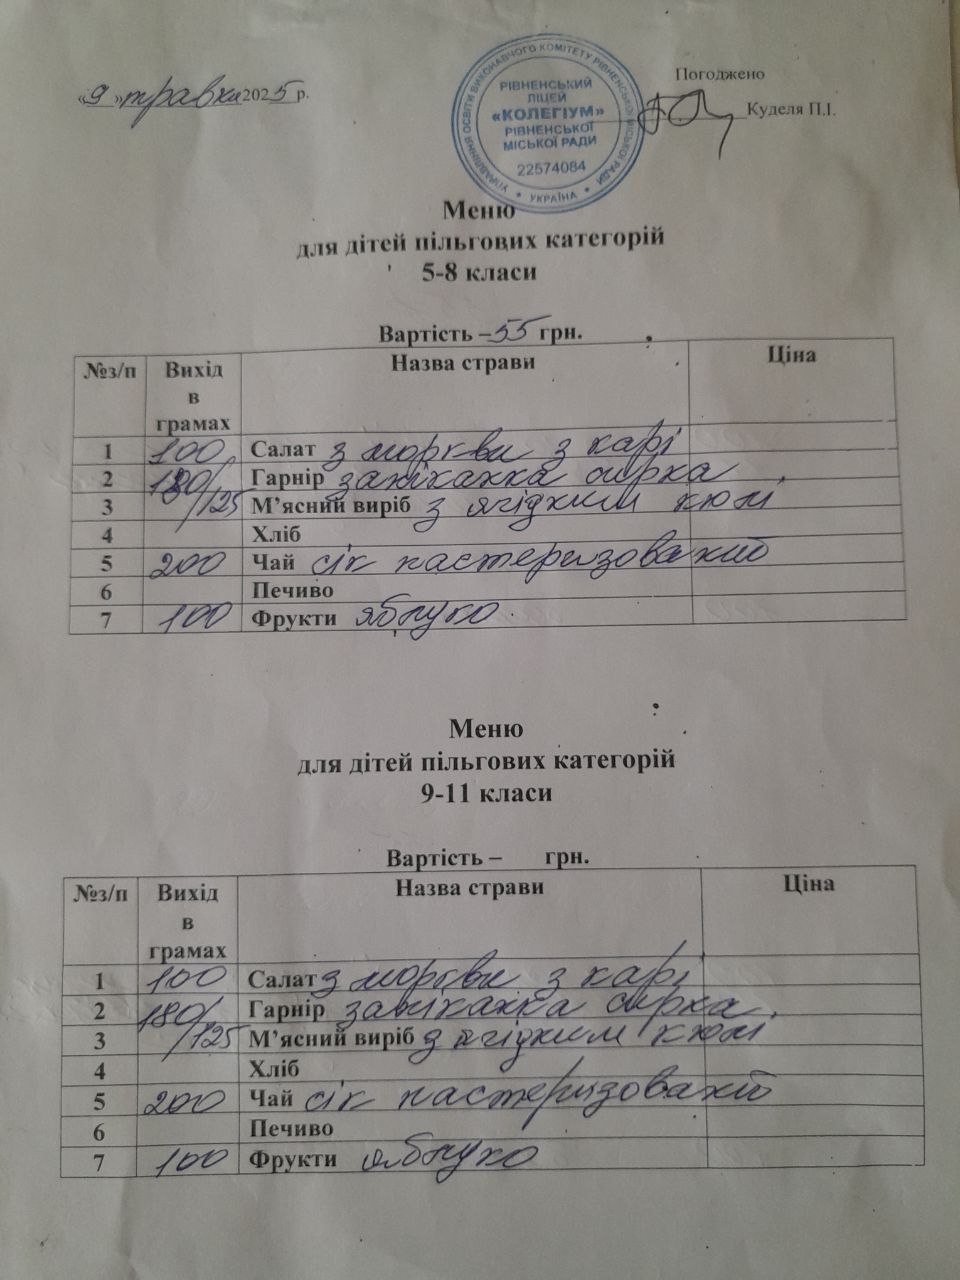 «9» травня 2025 р.
Погоджено
Куделя П.І.
УПРАВЛІННЯ ОСВІТИ ВИКОНАВЧОГО КОМІТЕТУ РІВНЕНСЬКОЇ МІСЬКОЇ РАДИ
РІВНЕНСЬКИЙ
ЛІЦЕЙ
«КОЛЕГІУМ»
РІВНЕНСЬКОЇ
МІСЬКОЇ РАДИ
22574084
* УКРАЇНА *
Меню
для дітей пільгових категорій
5-8 класи
Вартість – 55 грн.
№з/п Вихід в грамах Назва страви Ціна
1 100 Салат з моркви з карі
2 180/ Гарнір запіканка сирка
3 /125 М’ясний виріб з ягідним кюлі
4 Хліб
5 200 Чай сік пастеризований
6 Печиво
7 100 Фрукти яблуко
Меню
для дітей пільгових категорій
9-11 класи
Вартість – грн.
№з/п Вихід в грамах Назва страви Ціна
1 100 Салат з моркви з карі
2 180/ Гарнір запіканка сирка
3 /125 М’ясний виріб з ягідним кюлі
4 Хліб
5 200 Чай сік пастеризований
6 Печиво
7 100 Фрукти яблуко